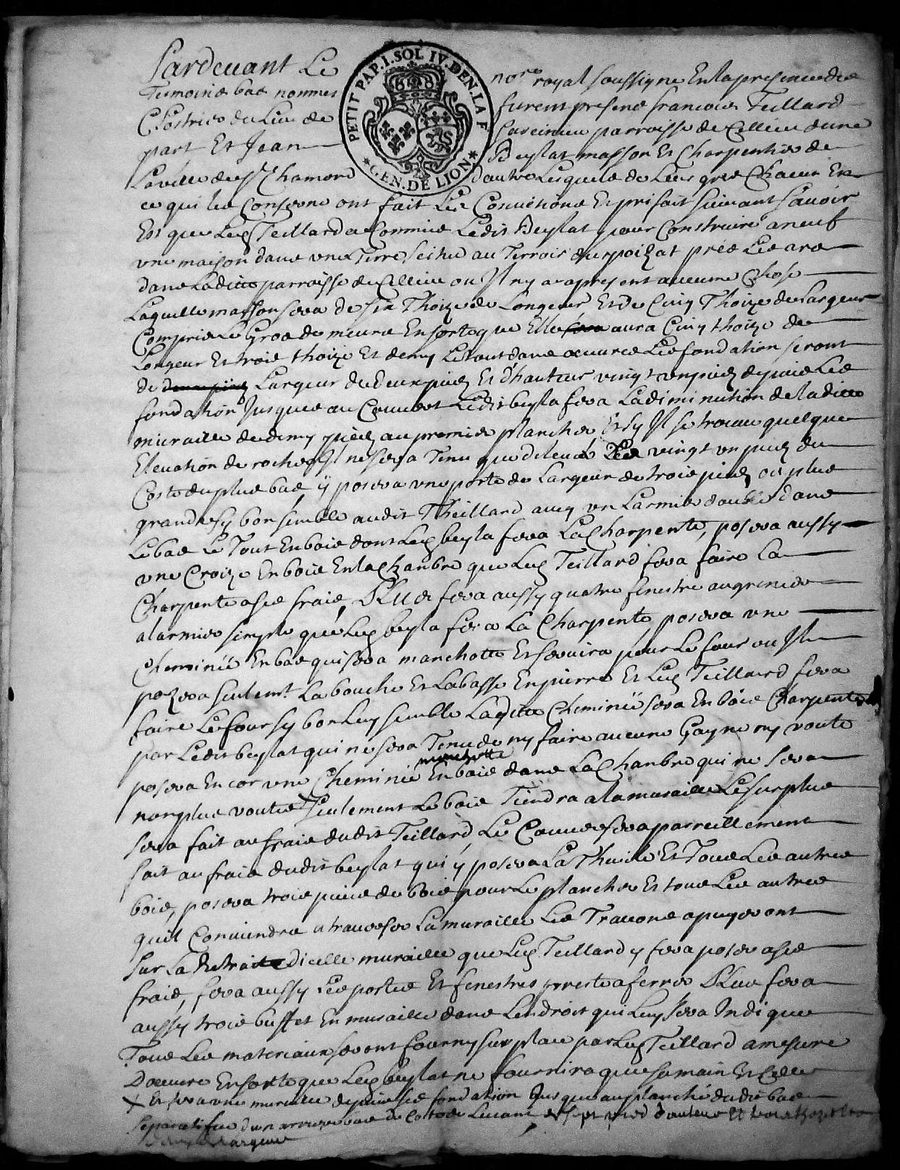 Pardevant Le no.re royal soussigne En la presence des
Temoins bas nommes furent presens francois Teillard
du Lieu de parroisse de Cellieu dune
part Et Jean Beylat masson Et Charpentier de
La ville de St Chamond dautre Lesquels de Leur gres Chacun En
ce qui les Conserne ont fait Les Convetions Et prisfait suivant Savoir
Est que Led Teillard a Commis Ledit Beylat pour Construire a neuf
une maison dans une Terre scitue au Terroir du poizat pres Les
dans Laditte parroisse de Cellieu ou Il ny a apresent aucune Chose
Laquelle maison sera de six Thoize de Longeur Et de Cinq Thoize de Largeur
Compris Le Gros de meure En sorte que Elle aura Cinq thoize de
Longeur Et trois thoize Et demy Le tout dans oeuvres Les fondation seront
de Largeur de deux pied Et d'hauteur vingt un pied depuis Les
fondation Jusques au Couvert Ledit beyla fera La diminution de laditte
muraille de demy pied au premier plancher Et sy Il se trouve quelque
Elevation de rocher Il ne sera Tenu que de Lever Les vingt un pied du
Coste du plus bas y posera une porte de Largeur de trois pied ou plus
grande sy bon semble audit Theillard avec un Larmier double dans
Le bas Le Tout En bois dont Led beyla fera La Charpente, posera aussy
une Croize En bois En la Chanbre que Led Teillard fera faire La
Charpente a ses frais, Plus fera aussy quatre fenestre au grenier
a larmier simple que Led beyla fera La Charpente posera une
Cheminée En bas qui sera manchotte Et servira pour Le four ou Il
pozera seulemt La bouche Et La basse En pierre Et Led Teillard fera
faire Le four sy bon Luy semble Laditte Cheminée sera En bois Charpente
par Ledit beylat qui ne sera Tenu de ny faire aucune Gayne ny voute
posera Encor une Cheminée manchotte En bois dans La Chanbre qui ne sera
non plus voutée seulement Le bois Tiendra a la muraille Le surplus
sera fait au frais dudit Teillard Le Couvert sera pareillement
fait au frais dudit beylat qui y posera La Thuile Et Tous Les autres
bois, posera trois piece de bois pour Le plancher Et tous Les autres
quil Conviendra a traverser La muraille Les Travons apuyeront
Sur La Retraite dicelle muraille que Led Teillard y fera poser a ses
frais, fera aussy Les portes Et fenestres preste a ferrer Plus fera
aussy trois buffet En muraille dans Lendroit qui Luy sera Indique
Tous Les materiaux seront fourny sur place par Led Teillard a mesure
Doeuvre En sorte que Led beylat ne fournira que sa main Et Celles
x Et fera une muraille depuis Les fondation Jusques au planché dudit bas
de Largeur
PETIT PAP. I. SOL IV. DEN. LA F
GEN. DE LION